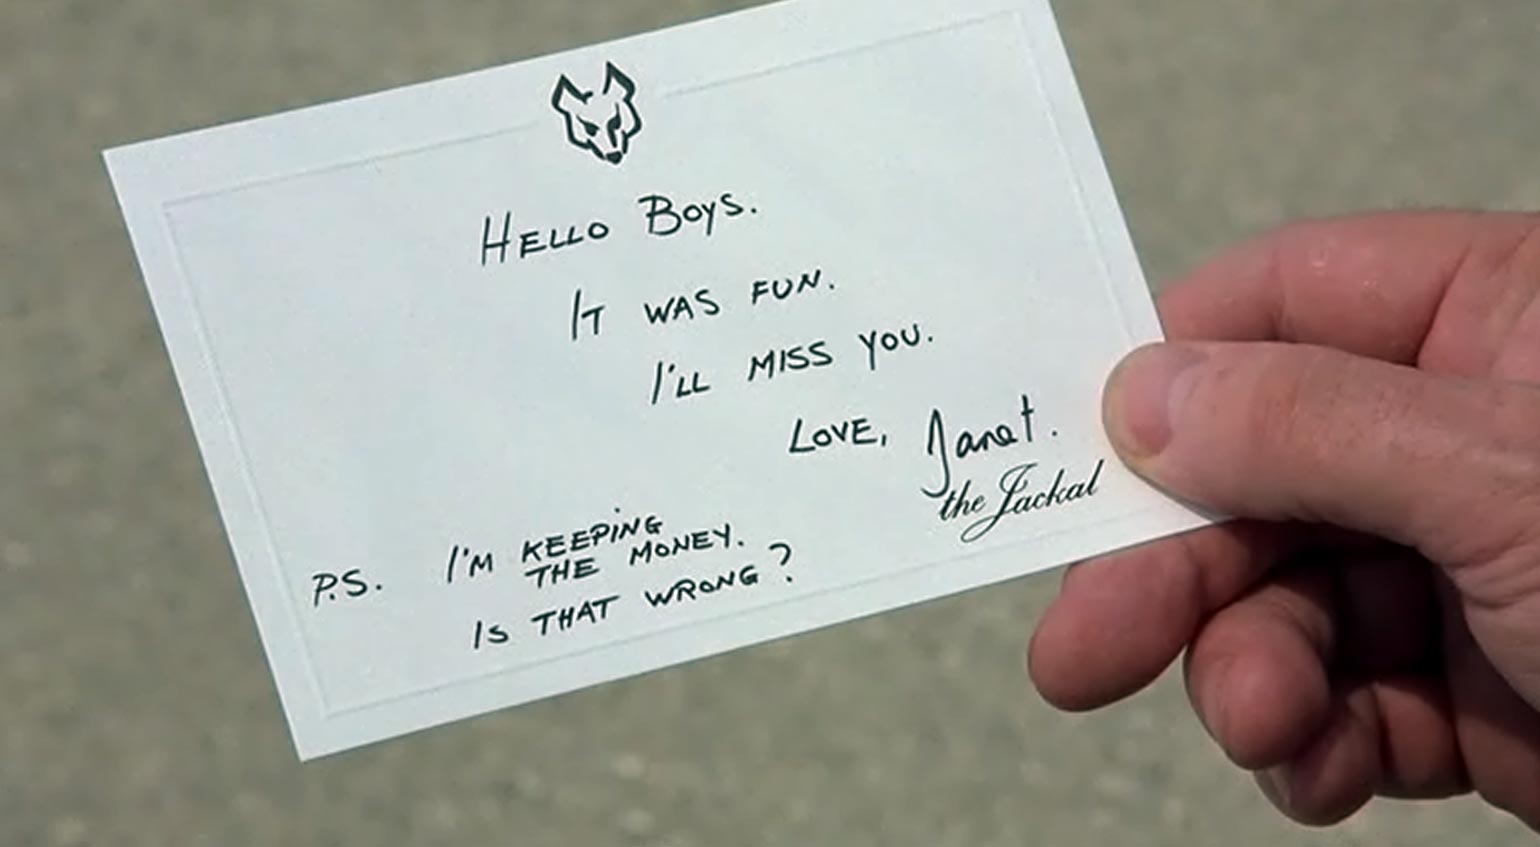 Hello Boys.
It was fun.
I'll miss you.
Love, Janet.
the Jackal
P.S. I'm keeping
the money.
Is that wrong?